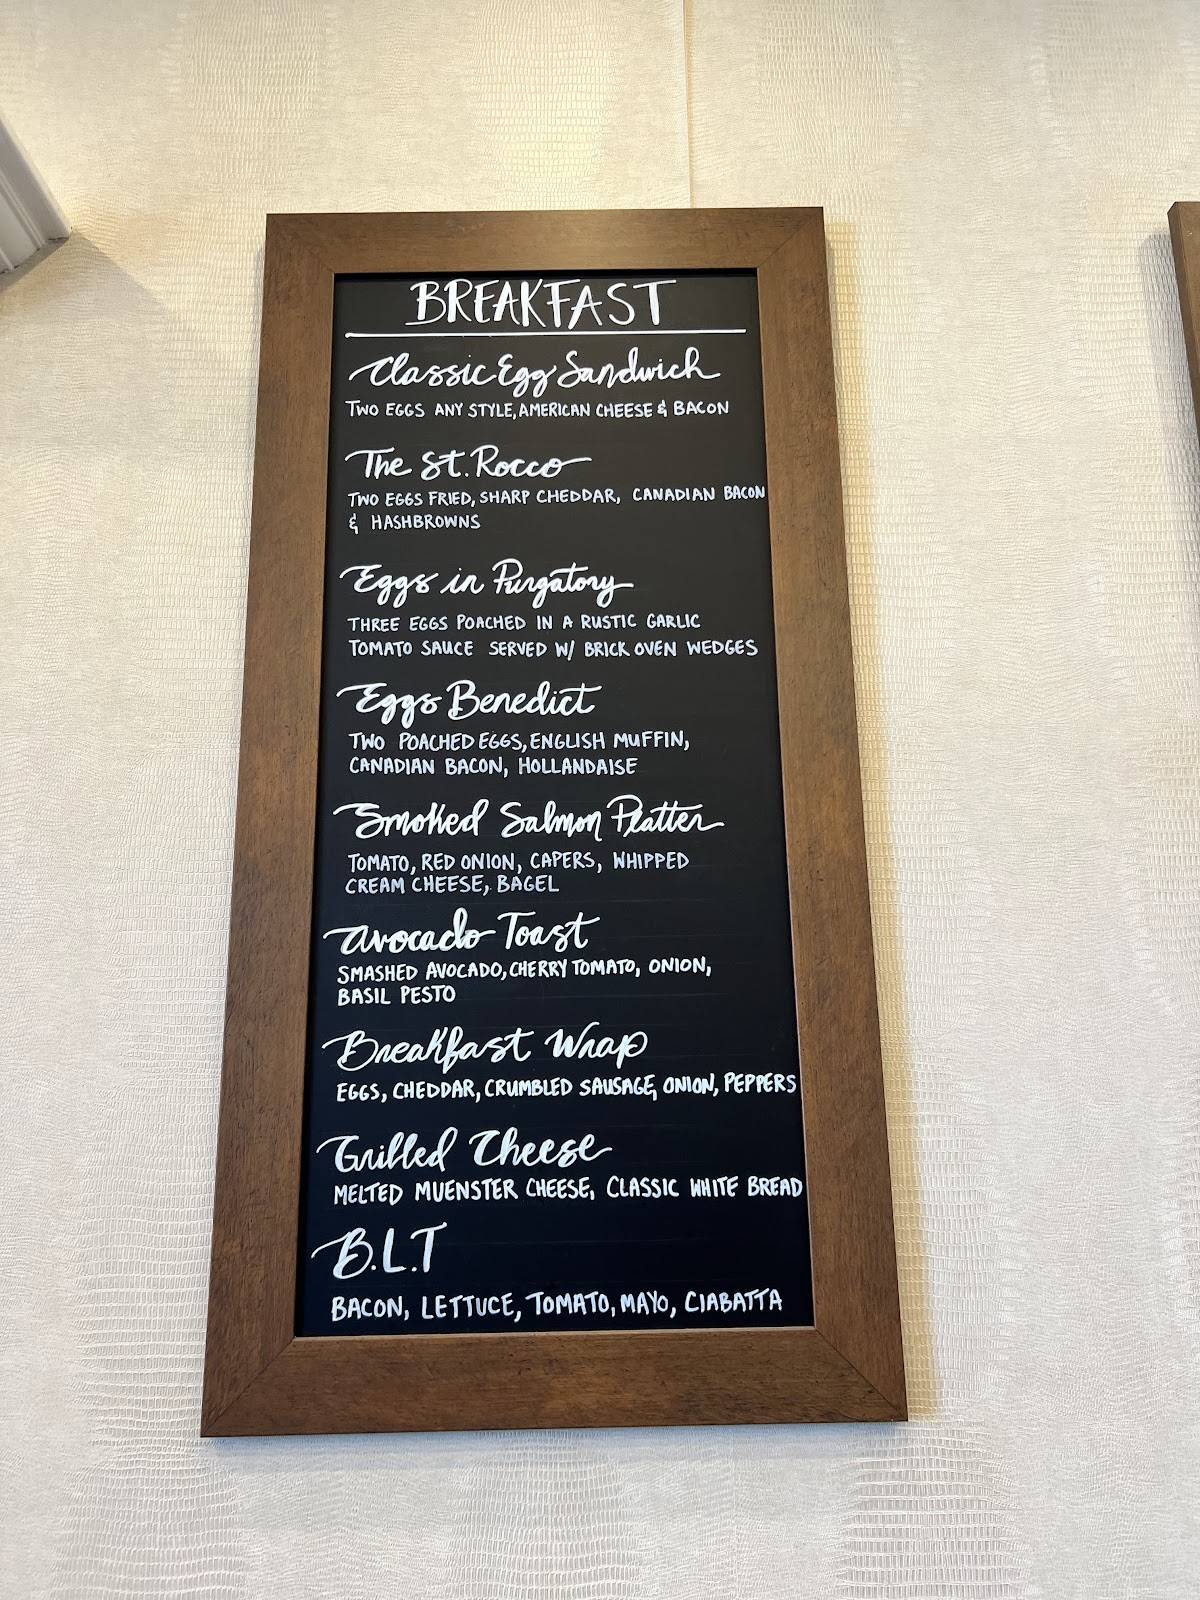 BREAKFAST
Classic Egg Sandwich
TWO EGGS ANY STYLE, AMERICAN CHEESE & BACON
The St. Rocco
TWO EGGS FRIED, SHARP CHEDDAR, CANADIAN BACON
& HASHBROWNS
Eggs in Purgatory
THREE EGGS POACHED IN A RUSTIC GARLIC
TOMATO SAUCE SERVED W/ BRICK OVEN WEDGES
Eggs Benedict
TWO POACHED EGGS, ENGLISH MUFFIN,
CANADIAN BACON, HOLLANDAISE
Smoked Salmon Platter
TOMATO, RED ONION, CAPERS, WHIPPED
CREAM CHEESE, BAGEL
Avocado Toast
SMASHED AVOCADO, CHERRY TOMATO, ONION,
BASIL PESTO
Breakfast Wrap
EGGS, CHEDDAR, CRUMBLED SAUSAGE, ONION, PEPPERS
Grilled Cheese
MELTED MUENSTER CHEESE, CLASSIC WHITE BREAD
B.L.T
BACON, LETTUCE, TOMATO, MAYO, CIABATTA